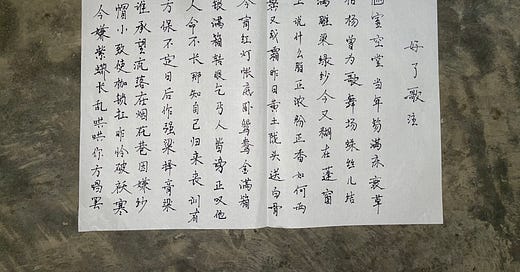 好了歌注
陋室空堂当年笏满床衰草
枯杨曾为歌舞场蛛丝儿结
满雕梁绿纱今又糊在蓬窗
上说什么脂正浓粉正香如何两
鬓又成霜昨日黄土陇头送白骨
今宵红灯帐底卧鸳鸯金满箱
银满箱转眼乞丐人皆谤正叹他
人命不长那知自己归来丧训有
方保不定日后作强梁择膏粱
谁承望流落在烟花巷因嫌纱
帽小致使枷锁扛昨怜破袄寒
今嫌紫蟒长乱哄哄你方唱罢